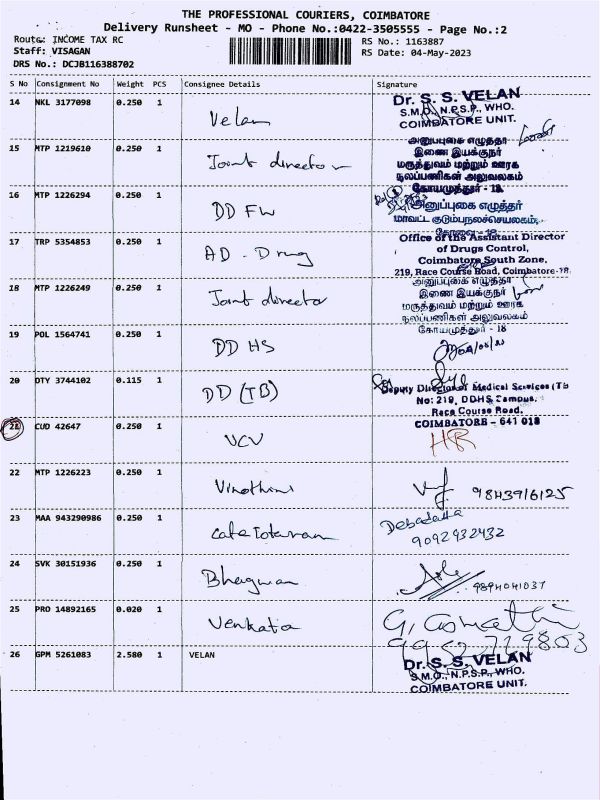 THE PROFESSIONAL COURIERS, COIMBATORE
Delivery Runsheet - MO - Phone No.:0422-3505555 - Page No.:2
Route: INCOME TAX RC
RS No.: 1163887
Staff: VISAGAN
RS Date: 04-May-2023
DRS No.: DCJB116388702
S No Consignment No Weight PCS Consignee Details Signature
14 NKL 3177098 0.250 1 Velan
Dr. S. S. VELAN
S.M.O., N.P.S.P., WHO.
COIMBATORE UNIT.
15 MTP 1219610 0.250 1 Joint director
அனுப்புகை எழுத்தர்
இணை இயக்குநர்
மருத்துவம் மற்றும் ஊரக
நலப்பணிகள் அலுவலகம்
கோயமுத்தூர் - 18
16 MTP 1226294 0.250 1 DD FW
அனுப்புகை எழுத்தர்
மாவட்ட குடும்பநலச்செயலகம்,
கோவை - 18
17 TRP 5354853 0.250 1 AD - Drug
Office of the Assistant Director
of Drugs Control,
Coimbatore South Zone,
219, Race Course Road, Coimbatore-18
18 MTP 1226249 0.250 1 Joint director
அனுப்புகை எழுத்தர்
இணை இயக்குநர்
மருத்துவம் மற்றும் ஊரக
நலப்பணிகள் அலுவலகம்
கோயமுத்தூர் - 18
19 POL 1564741 0.250 1 DD HS
20 DTY 3744102 0.115 1 DD (TB)
Deputy Director of Medical Services (Tb
No: 219, DDHS Campus,
Race Course Road,
COIMBATORE - 641 018
21 CUD 42647 0.250 1 VCV HR
22 MTP 1226223 0.250 1 Vinothini 9843916125
23 MAA 943290986 0.250 1 Debadatta
9092932432
24 SVK 30151936 0.250 1 Bhagwan 9894041037
25 PRO 14892165 0.020 1 Venkata G. Gomathi
9952719803
26 GPM 5261083 2.580 1 VELAN
Dr. S. S. VELAN
S.M.O., N.P.S.P., WHO.
COIMBATORE UNIT.